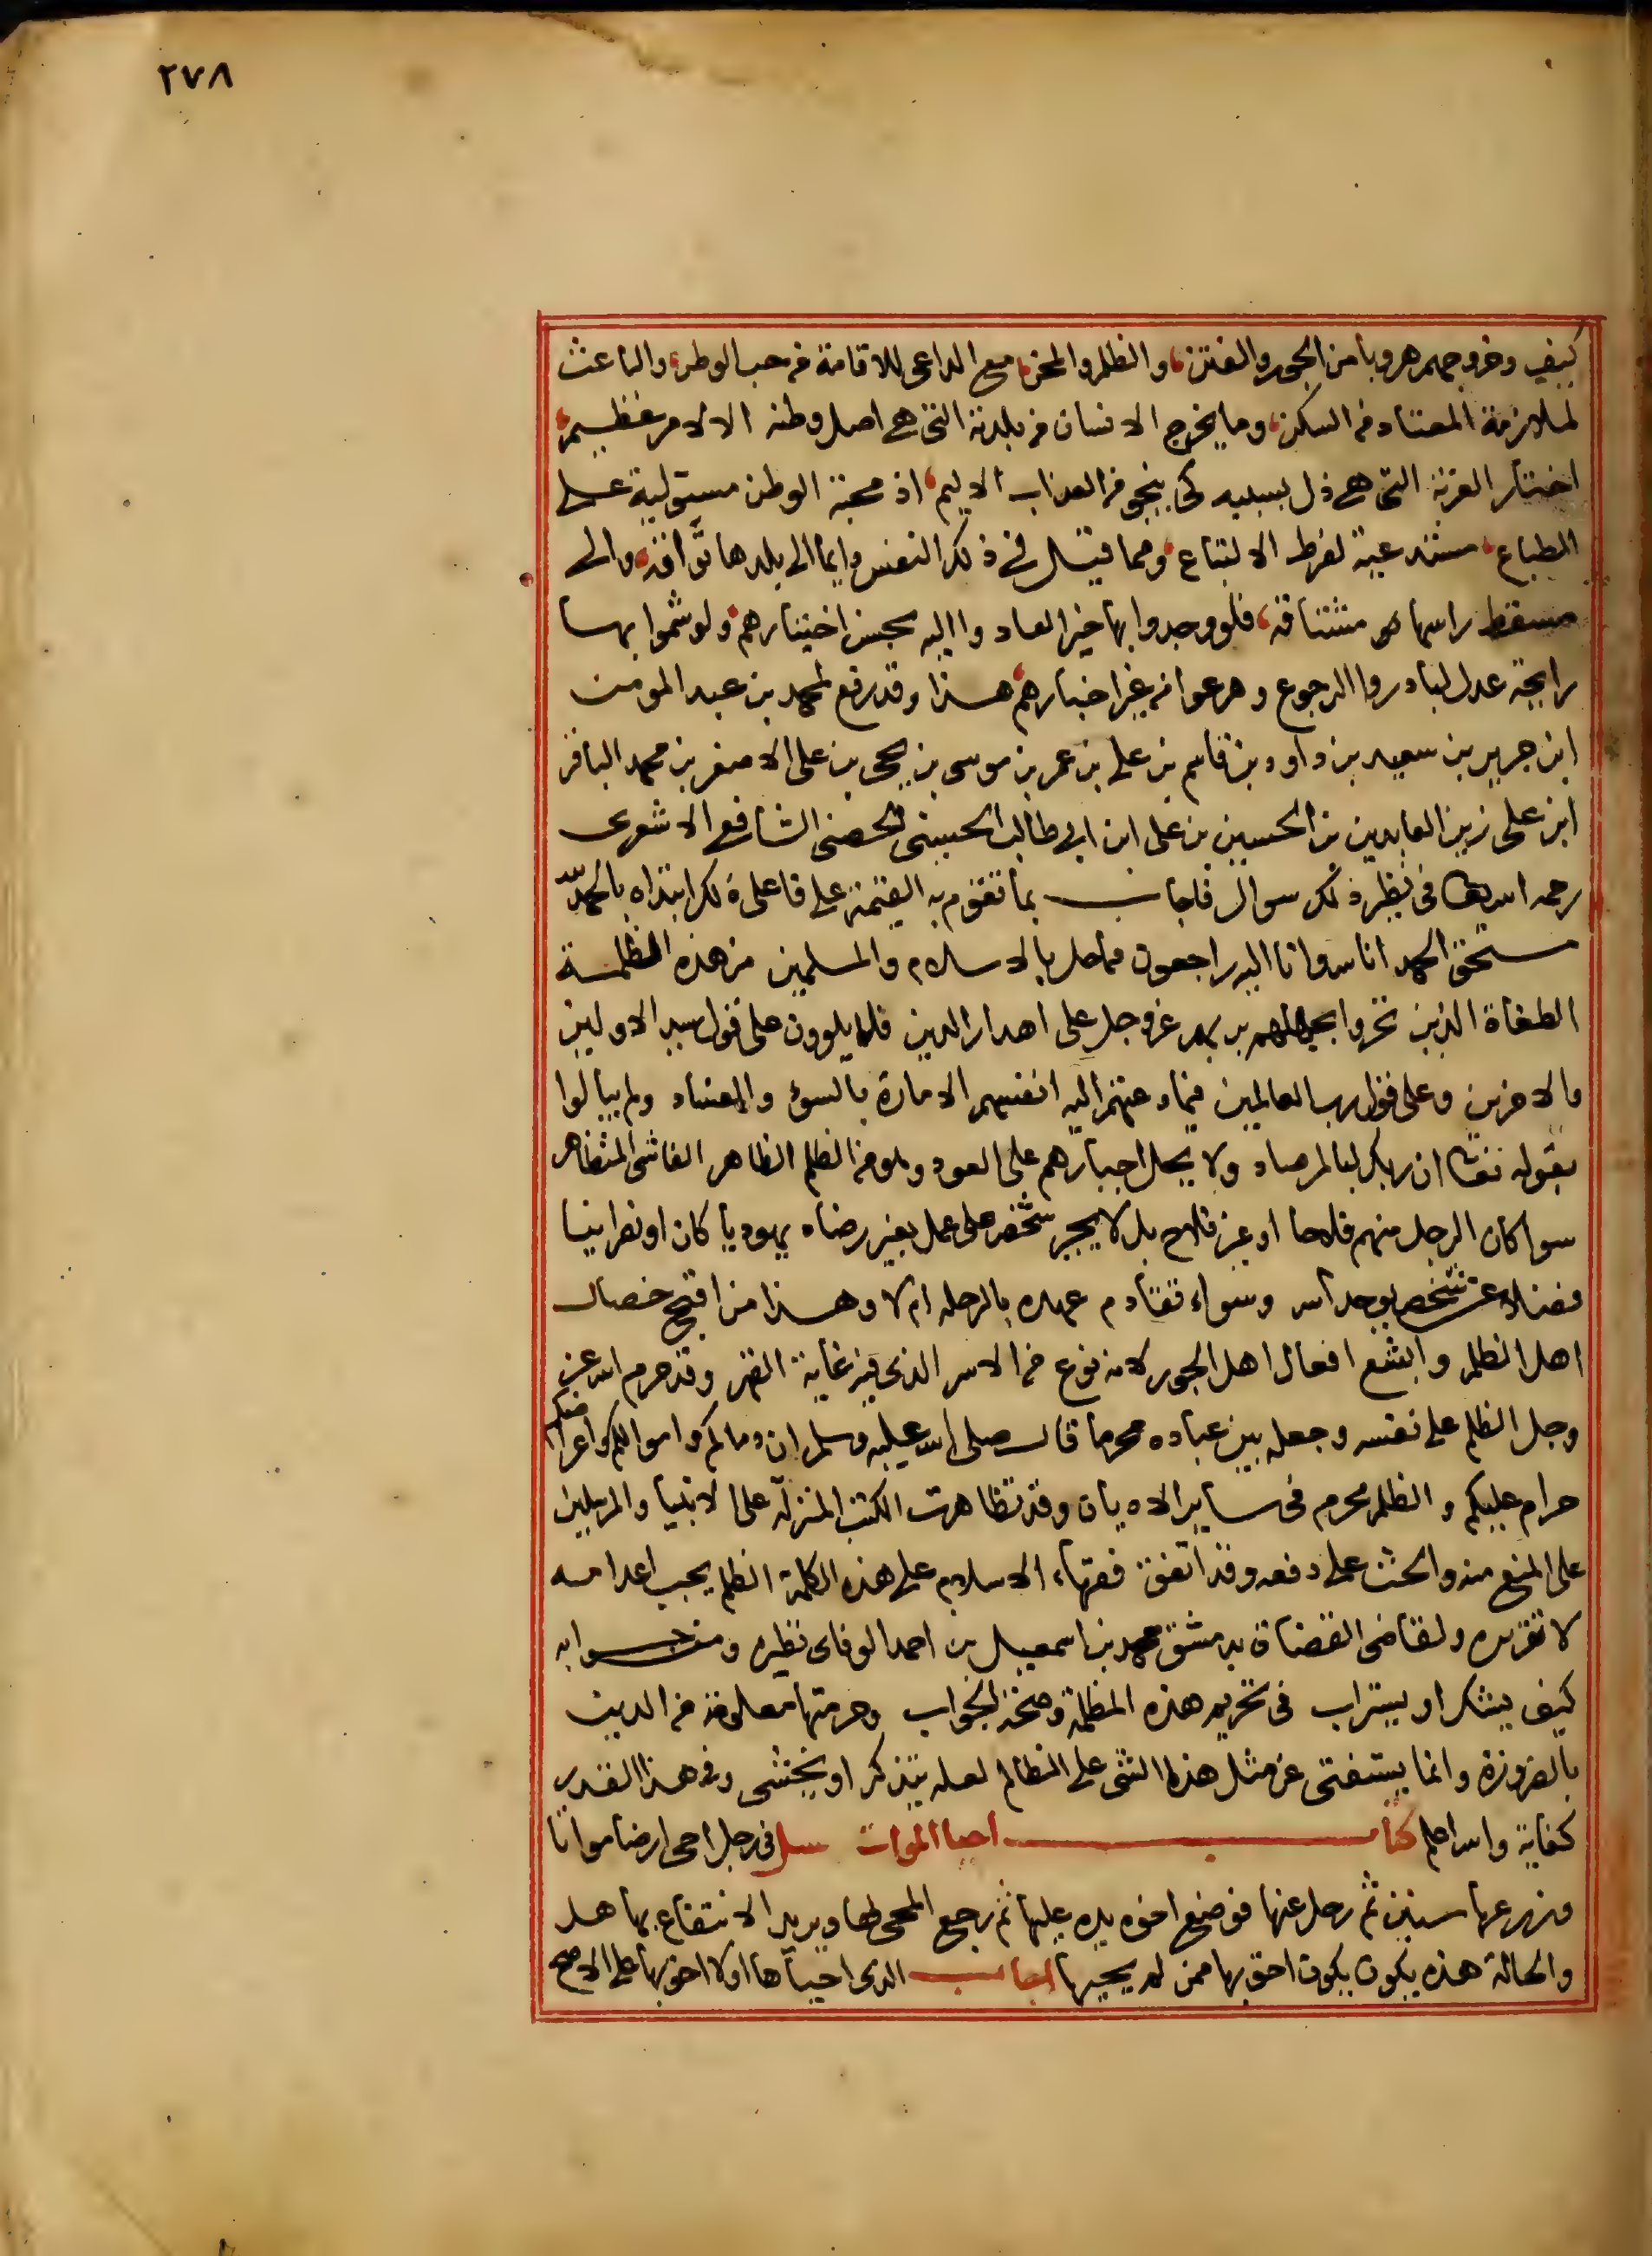 ٢٧٨
كيف وخروجهم هروبا من الجور والفتن، والظلم والمحن، مع الداعى للاقامة من حب الوطن، والباعث
لملازمة المعتاد من السكن، وما يخرج الانسان من بلدته التى هى اصل وطنه الا لامر عظيم،
اختار الغربة التى هى ذل بسببه كى ينجو من العذاب الاليم، اذ محبة الوطن مستولية على
الطباع، مستدعية لفرط الالتياع، ومما قيل فى ذلك النفس دايما الى بلدها تواقة، والى
مسقط راسها مشتاقة، فلو وجدوا بها خيرا لعادوا اليه بحسن اختيارهم، ولو شموا بها
رايحة عدل لبادروا الرجوع وهرعوا من غير اجبارهم، هذا وقد رفع لمحمد بن عبد المومن
ابن جرير بن سعيد بن داود بن قاسم بن على بن عمر بن موسى بن يحيى بن على الاصغر بن محمد الباقر
ابن على زين العابدين بن الحسين بن على ابن ابى طالب الحسينى الحصنى الشافعى الاشعرى
رحمه الله تعالى فى نظير ذلك سوال فاجاب بما تقوم به القيمة على فاعل ذلك ابتداه بالحمد لله
مستحق الحمد انا لله وانا اليه راجعون مما حل بالاسلام والمسلمين من هذه الظلمة
الطغاة الذين تجروا بجهلهم بربهم عز وجل على اهدار الدين فلا يلوون على قول سيد الاولين
والاخرين وعلى قول رب العالمين فيما دعتهم اليه انفسهم الامارة بالسوء والعناد ولم يبالوا
بقوله تعالى ان ربك لبالمرصاد ولا يحل اجبارهم على العود وهو من الظلم الظاهر الفاشى المتظاهر
سوا كان الرجل منهم فلاحا او غير فلاح بل لا يجبر شخص على عمل بغير رضاه يهوديا كان او نصرانيا
فضلا عن شخص يوحد الله وسواء تقادم عهده بالرحله ام لا وهذا من اقبح خصال
اهل الظلم وابشع افعال اهل الجور لانه نوع من الاسر الذى فيه غاية القهر وقد حرم الله عز
وجل الظلم على نفسه وجعله بين عباده محرما قال صلى الله عليه وسلم ان دماكم واموالكم واعراضكم
حرام عليكم والظلم محرم فى ساير الاديان وقد تظاهرت الكتب المنزلة على الانبيا والمرسلين
على المنع منه والحث على دفعه وقد اتفق فقهاء الاسلام على هذه الكلمة الظلم يجب اعدامه
لا تقريره ولقاضى القضاة بدمشق محمد بن اسمعيل بن احمد الوفاى نظيره ومن جوابه
كيف يشك او يستراب فى تحريم هذه المظلمة وصحة الجواب وحرمتها معلومة من الدين
بالضرورة وانما يستفتى عن مثل هذا الشى على الظالم لعله يتذكر او يخشى وفى هذا القدر
كفاية والله اعلم كتاب احيا الموات سل فى رجل احى ارضا مواتا
وزرعها سنين ثم رحل عنها فوضع اخوه يده عليها ثم رجع المحى لها ويريد الانتفاع بها هل
والحالة هذه يكون يكون احق بها ممن لم يحييها اجاب الذى احياها اولا احق بها على الاصح